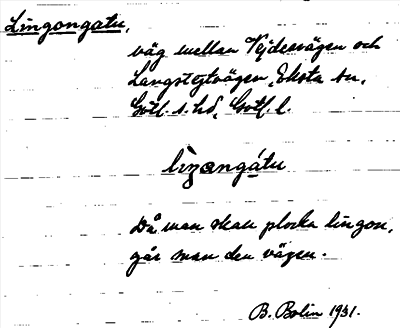 Lingongatu,
väg mellan Vejdesvägen och
Langstejtvägen, Eksta sn,
Gotl. s. hd, Gotl. l.
lingangátu
Då man skall plocka lingon,
går man den vägen.
B. Bolin 1931.